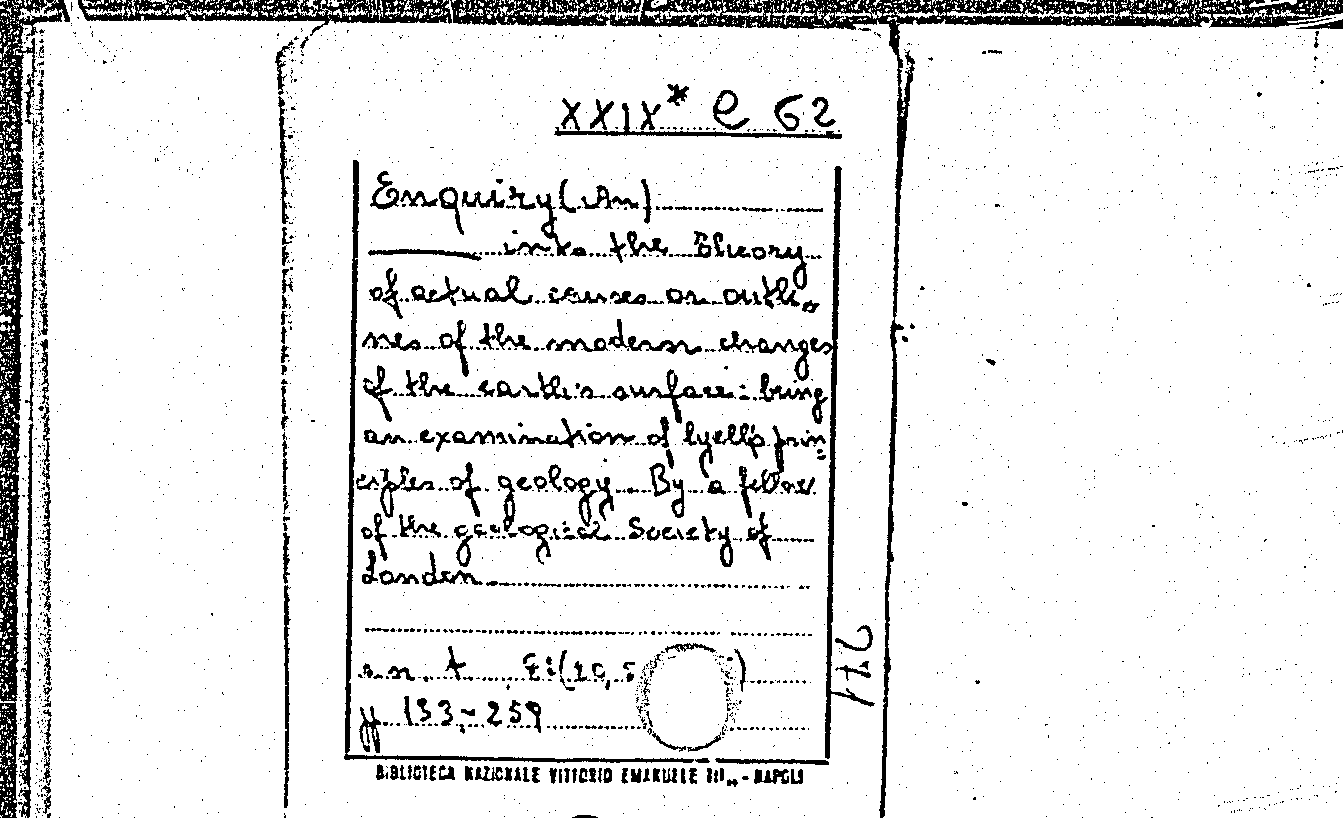 XXIX* C 62
Enquiry (An)
into the theory
of actual causes or outli=
nes of the modern changes
of the earth's surface: being
an examination of lyell's prin=
ciples of geology. By a fellow
of the geological Society of
London
s. n. t.
pp 133-259
271
BIBLIOTECA NAZIONALE VITTORIO EMANUELE III" - NAPOLI